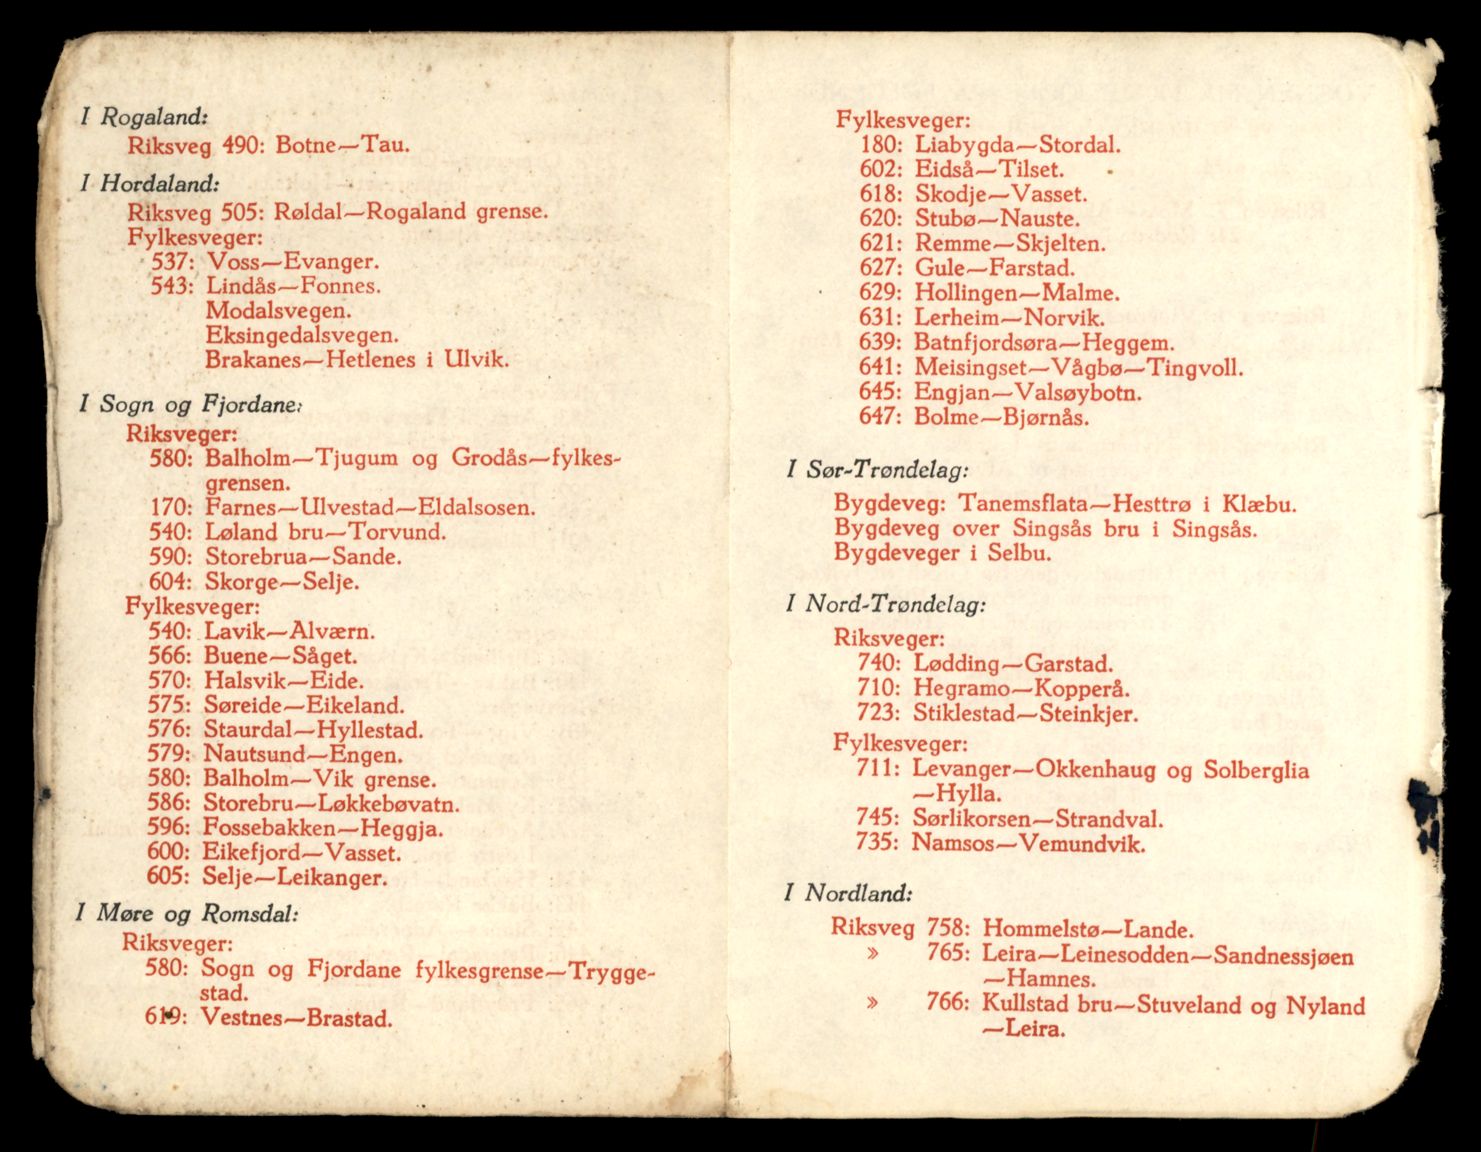 I Rogaland:
Riksveg 490: Botne—Tau.
I Hordaland:
Riksveg 505: Røldal—Rogaland grense.
Fylkesveger:
537: Voss—Evanger.
543: Lindås—Fonnes.
Modalsvegen.
Eksingedalsvegen.
Brakanes—Hetlenes i Ulvik.
I Sogn og Fjordane:
Riksveger:
580: Balholm—Tjugum og Grodås—fylkes-
grensen.
170: Farnes—Ulvestad—Eldalsosen.
540: Løland bru—Torvund.
590: Storebrua—Sande.
604: Skorge—Selje.
Fylkesveger:
540: Lavik—Alværn.
566: Buene—Såget.
570: Halsvik—Eide.
575: Søreide—Eikeland.
576: Staurdal—Hyllestad.
579: Nautsund—Engen.
580: Balholm—Vik grense.
586: Storebru—Løkkebøvatn.
596: Fossebakken—Heggja.
600: Eikefjord—Vasset.
605: Selje—Leikanger.
I Møre og Romsdal:
Riksveger:
580: Sogn og Fjordane fylkesgrense—Trygge-
stad.
619: Vestnes—Brastad.
Fylkesveger:
180: Liabygda—Stordal.
602: Eidså—Tilset.
618: Skodje—Vasset.
620: Stubø—Nauste.
621: Remme—Skjelten.
627: Gule—Farstad.
629: Hollingen—Malme.
631: Lerheim—Norvik.
639: Batnfjordsøra—Heggem.
641: Meisingset—Vågbø—Tingvoll.
645: Engjan—Valsøybotn.
647: Bolme—Bjørnås.
I Sør-Trøndelag:
Bygdeveg: Tanemsflata—Hesttrø i Klæbu.
Bygdeveg over Singsås bru i Singsås.
Bygdeveger i Selbu.
I Nord-Trøndelag:
Riksveger:
740: Lødding—Garstad.
710: Hegramo—Kopperå.
723: Stiklestad—Steinkjer.
Fylkesveger:
711: Levanger—Okkenhaug og Solberglia
—Hylla.
745: Sørlikorsen—Strandval.
735: Namsos—Vemundvik.
I Nordland:
Riksveg 758: Hommelstø—Lande.
» 765: Leira—Leinesodden—Sandnessjøen
—Hamnes.
» 766: Kullstad bru—Stuveland og Nyland
—Leira.